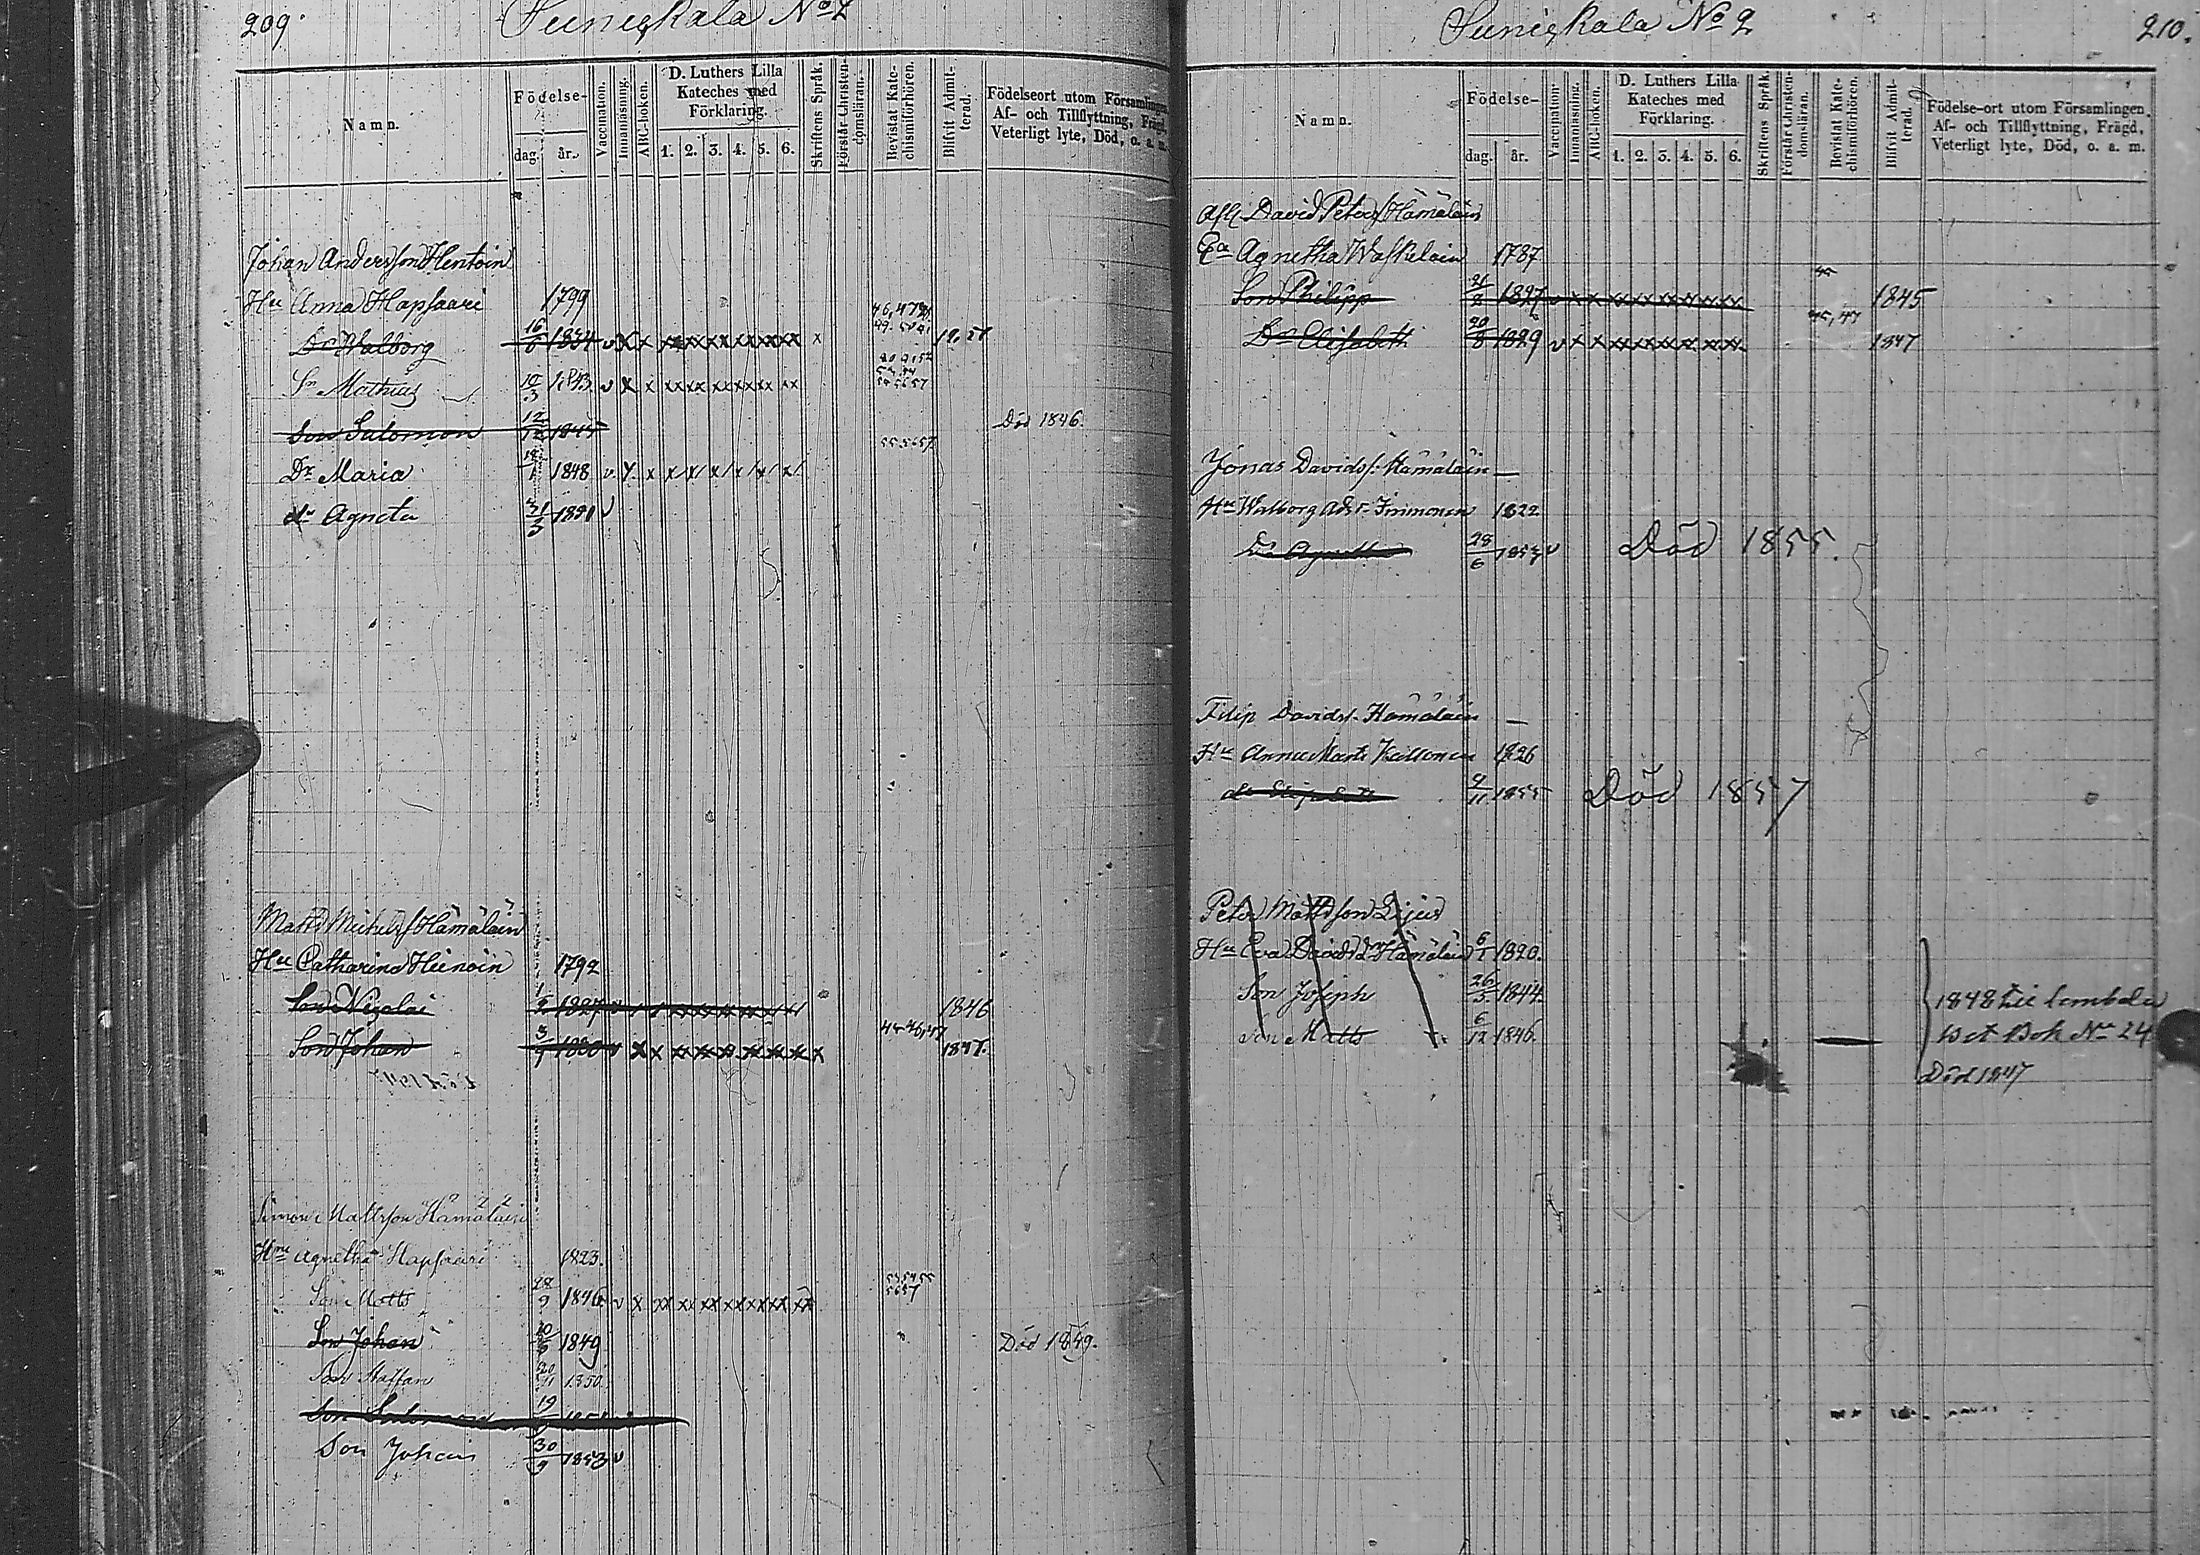 209.
Suniekala No 2
Namn.
Födelse-
dag. år.
Vaccination.
Innanläsning.
ABC-boken.
D. Luthers Lilla
Kateches med
Förklaring.
1. 2. 3. 4. 5. 6.
Skriftens Språk.
Förstår Christen-
domsläran.
Bevistat Kate-
chismiförhören.
Blifvit Admit-
terad.
Födelseort utom Församlingen,
Af- och Tillflyttning, Frägd,
Veterligt lyte, Död, o. a. m.
Johan Andersson Hentoin
Hu Anna Hapsaari 1799
Dr Walborg 16/6 1834 v x x xx xx xx xx xx xx x
Sn Mathias 10/3 1843 v x x xx xx xx xx xx xx
Son Salomon 12/12 1845 Död 1846.
Dr Maria 18/1 1848 v
dr Agneta 31/3 1851 v
Matts Michelss Hämäläin
Hu Catharina Heinoin 1792
Son Nigolai 1827 1846
Son Johan 1830 45 46, 47 1847.
Simon Mattsson Hämäläin
Hu Agnetha Hapsaari 1823.
Son Matts 28/9 1846 v x xx xx xx xx xx xx
Son Johan 1849 Död 1849.
Son Staffan 20/11 1850.
Son Salomon 19
Son Johan 30/9 1853 v
Suniekala No 2
210.
Namn.
Födelse-
dag. år.
Vaccination.
Innanläsning.
ABC-boken.
D. Luthers Lilla
Kateches med
Förklaring.
1. 2. 3. 4. 5. 6.
Skriftens Språk.
Förstår Christen-
domsläran.
Bevistat Kate-
chismiförhören.
Blifvit Admit-
terad.
Födelse-ort utom Församlingen,
Af- och Tillflyttning, Frägd,
Veterligt lyte, Död, o. a. m.
Afl David Peterss Hämäläin
Ea Agnetha Waskelain 1787
Son Philipp 1827 v x x xx xx xx xx xx xx 45 1845
Dr Elisabeth 20/8 1829 v x x xx xx xx xx xx xx 45, 47 1847
Jonas Davidss: Hämäläin —
Hu Walborg Adsr. Jinmonen 1822
Dr Agnetha 28/6 1853 v Död 1855.
Filip Davidss. Hämäläin —
Hu Anna Marts Keitonen 1826
dr Elisabet 9/11 1855 Död 1857
Peter Mattsson Lijus
Hu Eva Davidsdr Hämäläin 1820.
Son Joseph 26/3 1844.
Son Matts 6/12 1846.
1848 Lie lembala
Wet Bok No 24
Död 1847